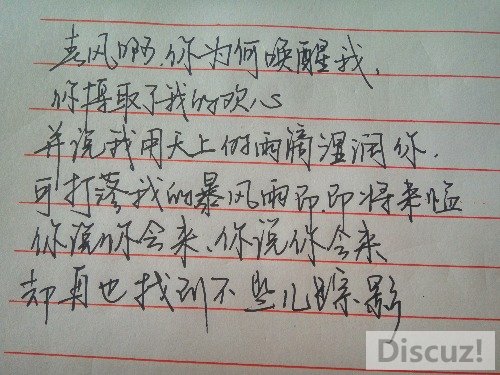 春风啊，你为何唤醒我，
你博取了我的欢心
并说我用天上的雨滴湿润你，
可打落我的暴风雨即，即将来临
你说你会来、你说你会来
却再也找到不些儿踪影
Discuz!